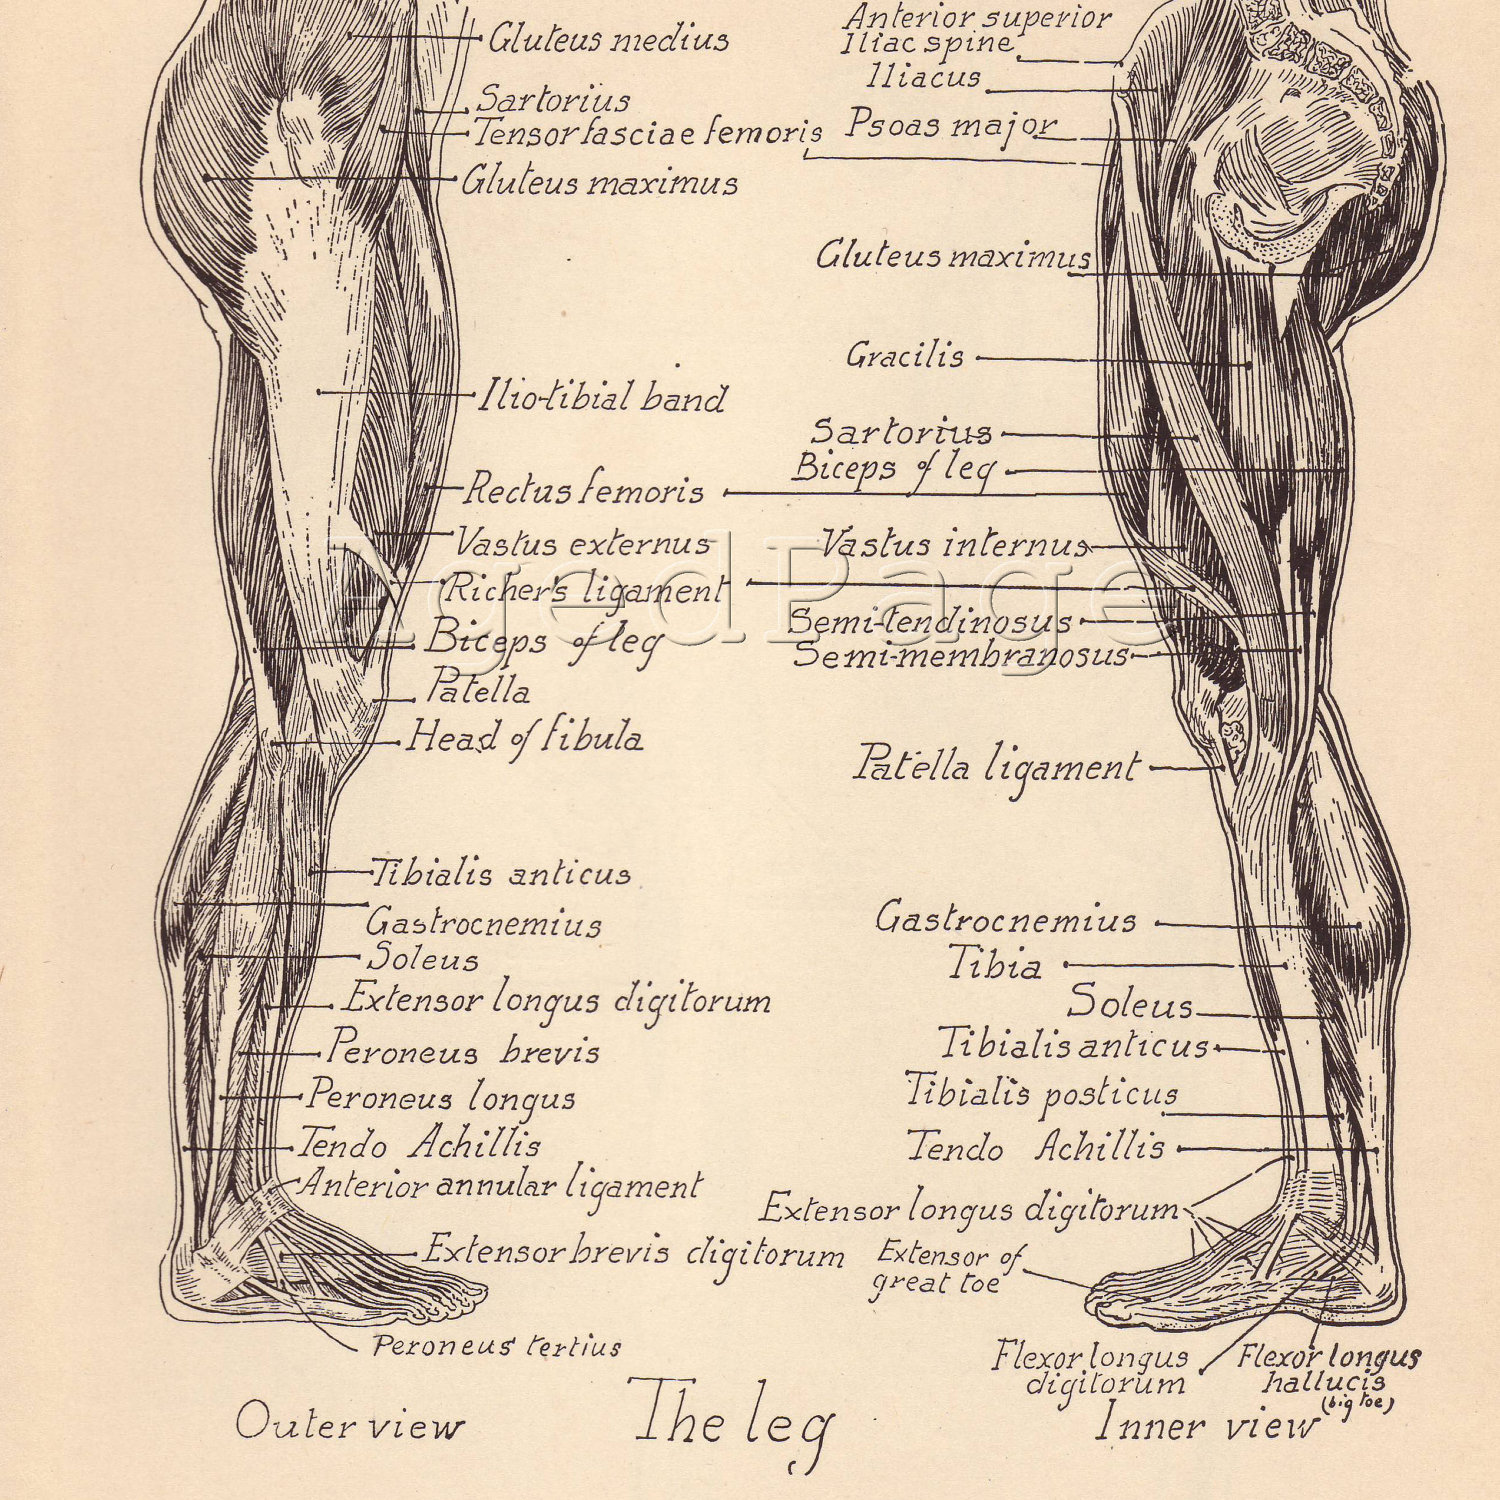 Gluteus medius
Sartorius
Tensor fasciae femoris
Gluteus maximus
Ilio-tibial band
Rectus femoris
Vastus externus
Richer's ligament
Biceps of leg
Patella
Head of fibula
Tibialis anticus
Gastrocnemius
Soleus
Extensor longus digitorum
Peroneus brevis
Peroneus longus
Tendo Achillis
Anterior annular ligament
Extensor brevis digitorum
Peroneus tertius
Outer view
Anterior superior
Iliac spine
Iliacus
Psoas major
Gluteus maximus
Gracilis
Sartorius
Biceps of leg
Vastus internus
Semi-tendinosus
Semi-membranosus
Patella ligament
Gastrocnemius
Tibia
Soleus
Tibialis anticus
Tibialis posticus
Tendo Achillis
Extensor longus digitorum
Extensor of
great toe
Flexor longus
digitorum
Flexor longus
hallucis
(big toe)
Inner view
The leg
AgedPage